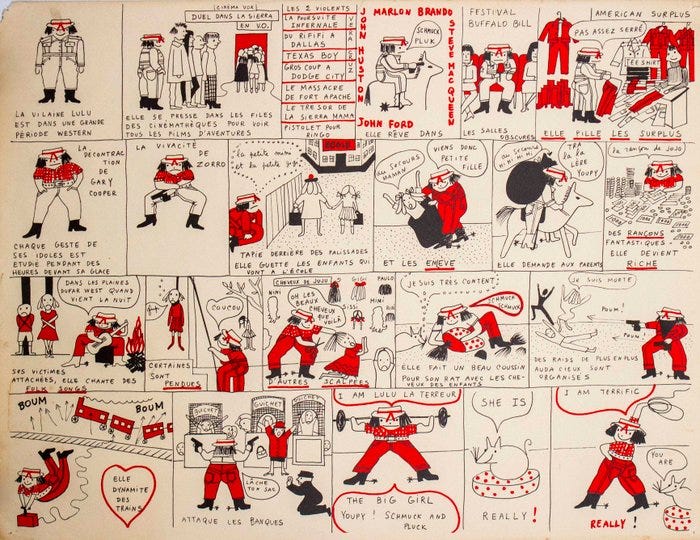 LA VILAINE LULU
EST DANS UNE GRANDE
PÉRIODE WESTERN
CINEMA VOX
DUEL DANS LA SIERRA
EN V.O.
ELLE SE PRESSE DANS LES FILES
DES CINÉMATHÈQUES POUR VOIR
TOUS LES FILMS D'AVENTURES
LES 2 VIOLENTS
LA POURSUITE
INFERNALE
DU RIFIFI A
DALLAS
TEXAS BOY
GROS COUP A
DODGE CITY
VERA CRUZ
LE MASSACRE
DE FORT APACHE
LE TRESOR DE
LA SIERRA MAMA
PISTOLET POUR
RINGO
JOHN HUSTON
MARLON BRANDO
STEVE MAC QUEEN
SCHMUCK
PLUK
JOHN FORD
ELLE RÊVE DANS
FESTIVAL
BUFFALO BILL
LES SALLES
OBSCURES
AMERICAN SURPLUS
PAS ASSEZ SERRÉ
TEE SHIRT
ELLE PILLE LES SURPLUS
LA
DECONTRAC
TION DE
GARY
COOPER
CHAQUE GESTE DE
SES IDOLES EST
ETUDIE PENDANT DES
HEURES DEVANT SA GLACE
LA VIVACITÉ
DE
ZORRO
la petite mimi
et la petite gigi
ECOLE
TAPIE DERRIÈRE DES PALISSADES
ELLE GUETTE LES ENFANTS QUI
VONT A L'ÉCOLE
AU SECOURS
MAMAN
VIENS DONC
PETITE
FILLE
ET LES ENLÈVE
AU SECOURS
HI. HI. HI.
TRA
LA LA
LÈRE
YOUPY
ELLE DEMANDE AUX PARENTS
la rançon de JOJO
DES RANÇONS
FANTASTIQUES.
ELLE DEVIENT
RICHE
DANS LES PLAINES
DU FAR WEST QUAND
VIENT LA NUIT
SES VICTIMES
ATTACHÉES, ELLE CHANTE DES
FOLK SONGS
CERTAINES
SONT
PENDUES
COUCOU
CHEVEUX DE JOJO
NINI
OH LES
BEAUX
CHEVEUX
QUE
VOILÀ
GIGI
PAULO
SISSI
MIMI
D'AUTRES SCALPÉES
JE SUIS TRÈS CONTENT
SCHMUCK
SCHMUCK
ELLE FAIT UN BEAU COUSSIN
POUR SON RAT AVEC LES CHE-
VEUX DES ENFANTS
JE SUIS MORTE
POUM!
POUM!
DES RAIDS DE PLUS EN PLUS
AUDACIEUX SONT
ORGANISÉS
BOUM
BOUM
ELLE
DYNAMITE
DES
TRAINS
GUICHET
GUICHET
GUICHET
LÂCHE
TON SAC
ATTAQUE LES BANQUES
I AM LULU LA TERREUR
THE BIG GIRL
YOUPY! SCHMUCK AND
PLUCK
SHE IS
REALLY!
I AM TERRIFIC
YOU ARE
REALLY!